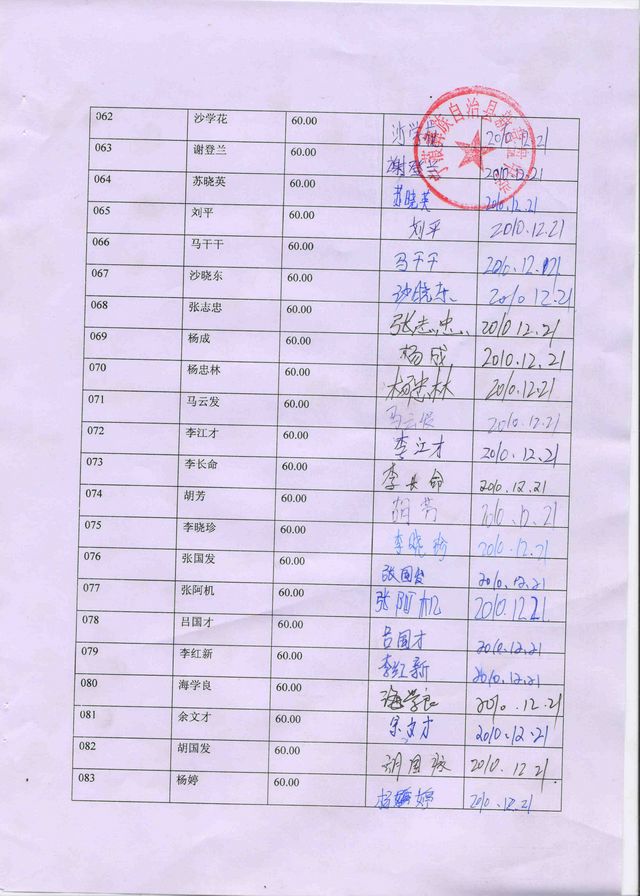 062 沙学花 60.00 沙学 2010.12.21
063 谢登兰 60.00 谢登兰 2010.12.21
064 苏晓英 60.00 苏晓英 2010.12.21
065 刘平 60.00 刘平 2010.12.21
066 马干干 60.00 马干干 2010.12.21
067 沙晓东 60.00 沙晓东 2010.12.21
068 张志忠 60.00 张志忠 2010.12.21
069 杨成 60.00 杨成 2010.12.21
070 杨忠林 60.00 杨忠林 2010.12.21
071 马云发 60.00 马云发 2010.12.21
072 李江才 60.00 李江才 2010.12.21
073 李长命 60.00 李长命 2010.12.21
074 胡芳 60.00 胡芳 2010.12.21
075 李晓珍 60.00 李晓珍 2010.12.21
076 张国发 60.00 张国发 2010.12.21
077 张阿机 60.00 张阿机 2010.12.21
078 吕国才 60.00 吕国才 2010.12.21
079 李红新 60.00 李红新 2010.12.21
080 海学良 60.00 海学良 2010.12.21
081 余文才 60.00 余文才 2010.12.21
082 胡国发 60.00 胡国发 2010.12.21
083 杨婷 60.00 杨婷 2010.12.21
族自治县新